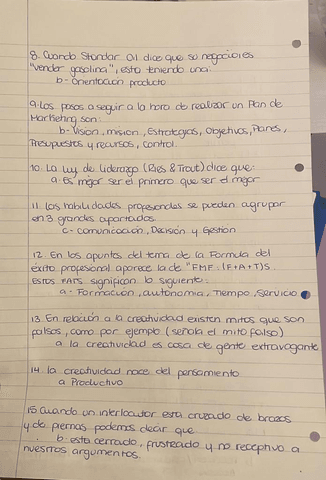 8. Cuando Standar Oil dice que su negocio es
"vender gasolina", esta teniendo una:
b- orientación producto
9. Los pasos a seguir a la hora de realizar un Plan de
Marketing son:
b- Vision, mision, Estrategias, Objetivos, Planes,
Presupuestos y recursos, control.
10. La Ley de Liderazgo (Ries & Trout) dice que:
a. Es mejor ser el primero que ser el mejor
11. Las habilidades profesionales se pueden agrupar
en 3 grandes apartados.
c- comunicación, Decisión y Gestión
12. En los apuntes del tema de la Formula del
éxito profesional aparece la de "FMF. (F+A+T)S
Estos FATS significan lo siguiente:
a. Formacion, autonomia, Tiempo, Servicio
13. En relación a la creatividad existen mitos que son
falsos, como por ejemplo (señala el mito falso)
a la creatividad es cosa de gente extravagante
14. la creatividad nace del pensamiento
a Productivo
15. Cuando un interlocutor esta cruzado de brazos
y de piernas podemos decir que
b. esta cerrado, frustrado y no receptivo a
nuestros argumentos.